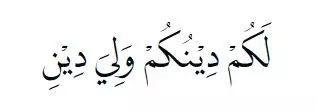 لَكُمْ دِيْنُكُمْ وَلِيَ دِيْنِ